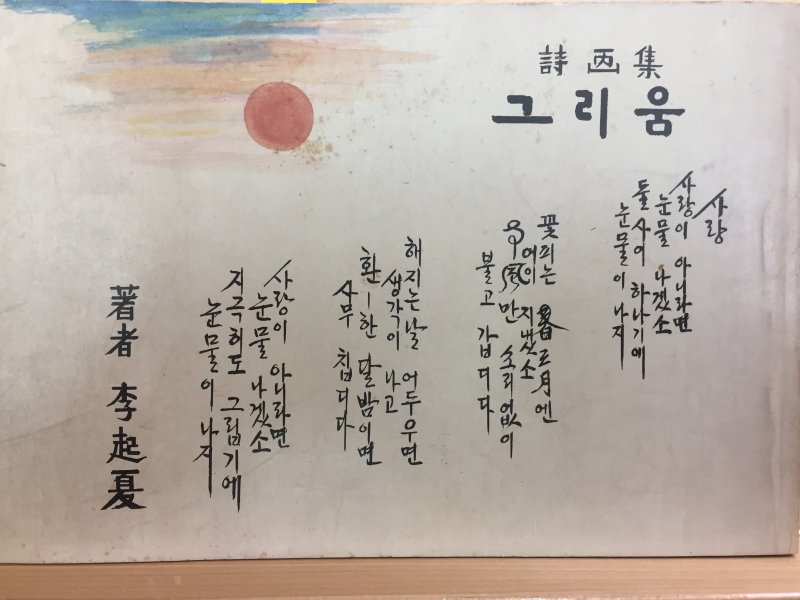 詩画集
그리움
사랑
사랑이 아니라면
눈물 나겠소
둘 사이 하나기에
눈물이 나지
꽃피는
어이 지냈소
소리없이
불고 갑디다
해지는 날 어두우면
생각이 나고
환-한 달밤이면
사무 칩디다
사랑이 아니라면
눈물 나겠소
지극히도 그립기에
눈물이 나지
著者 李起夏